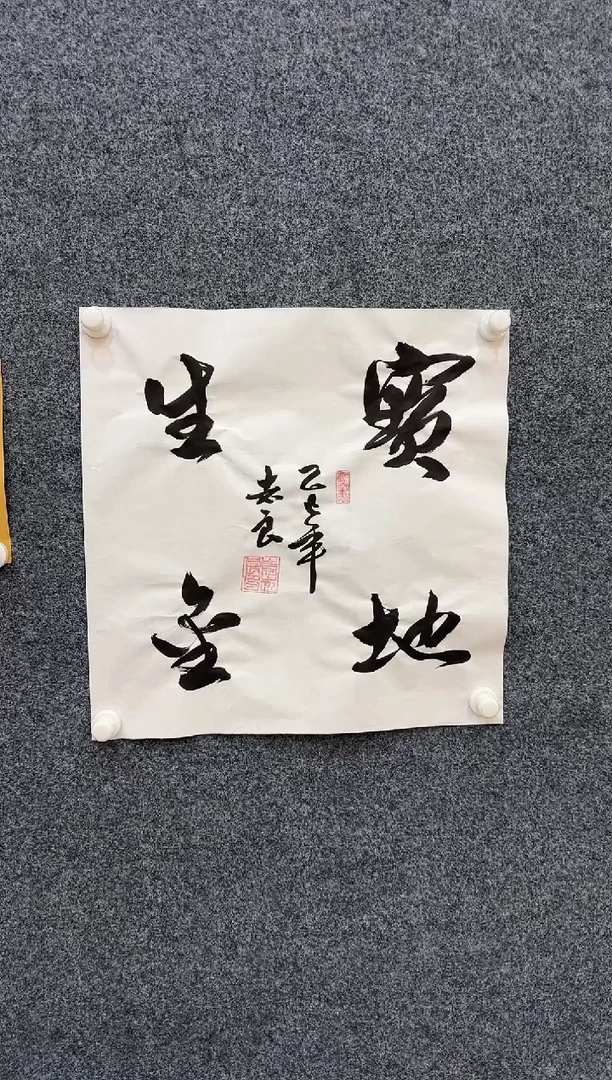 寶地
生金
乙巳年
志良